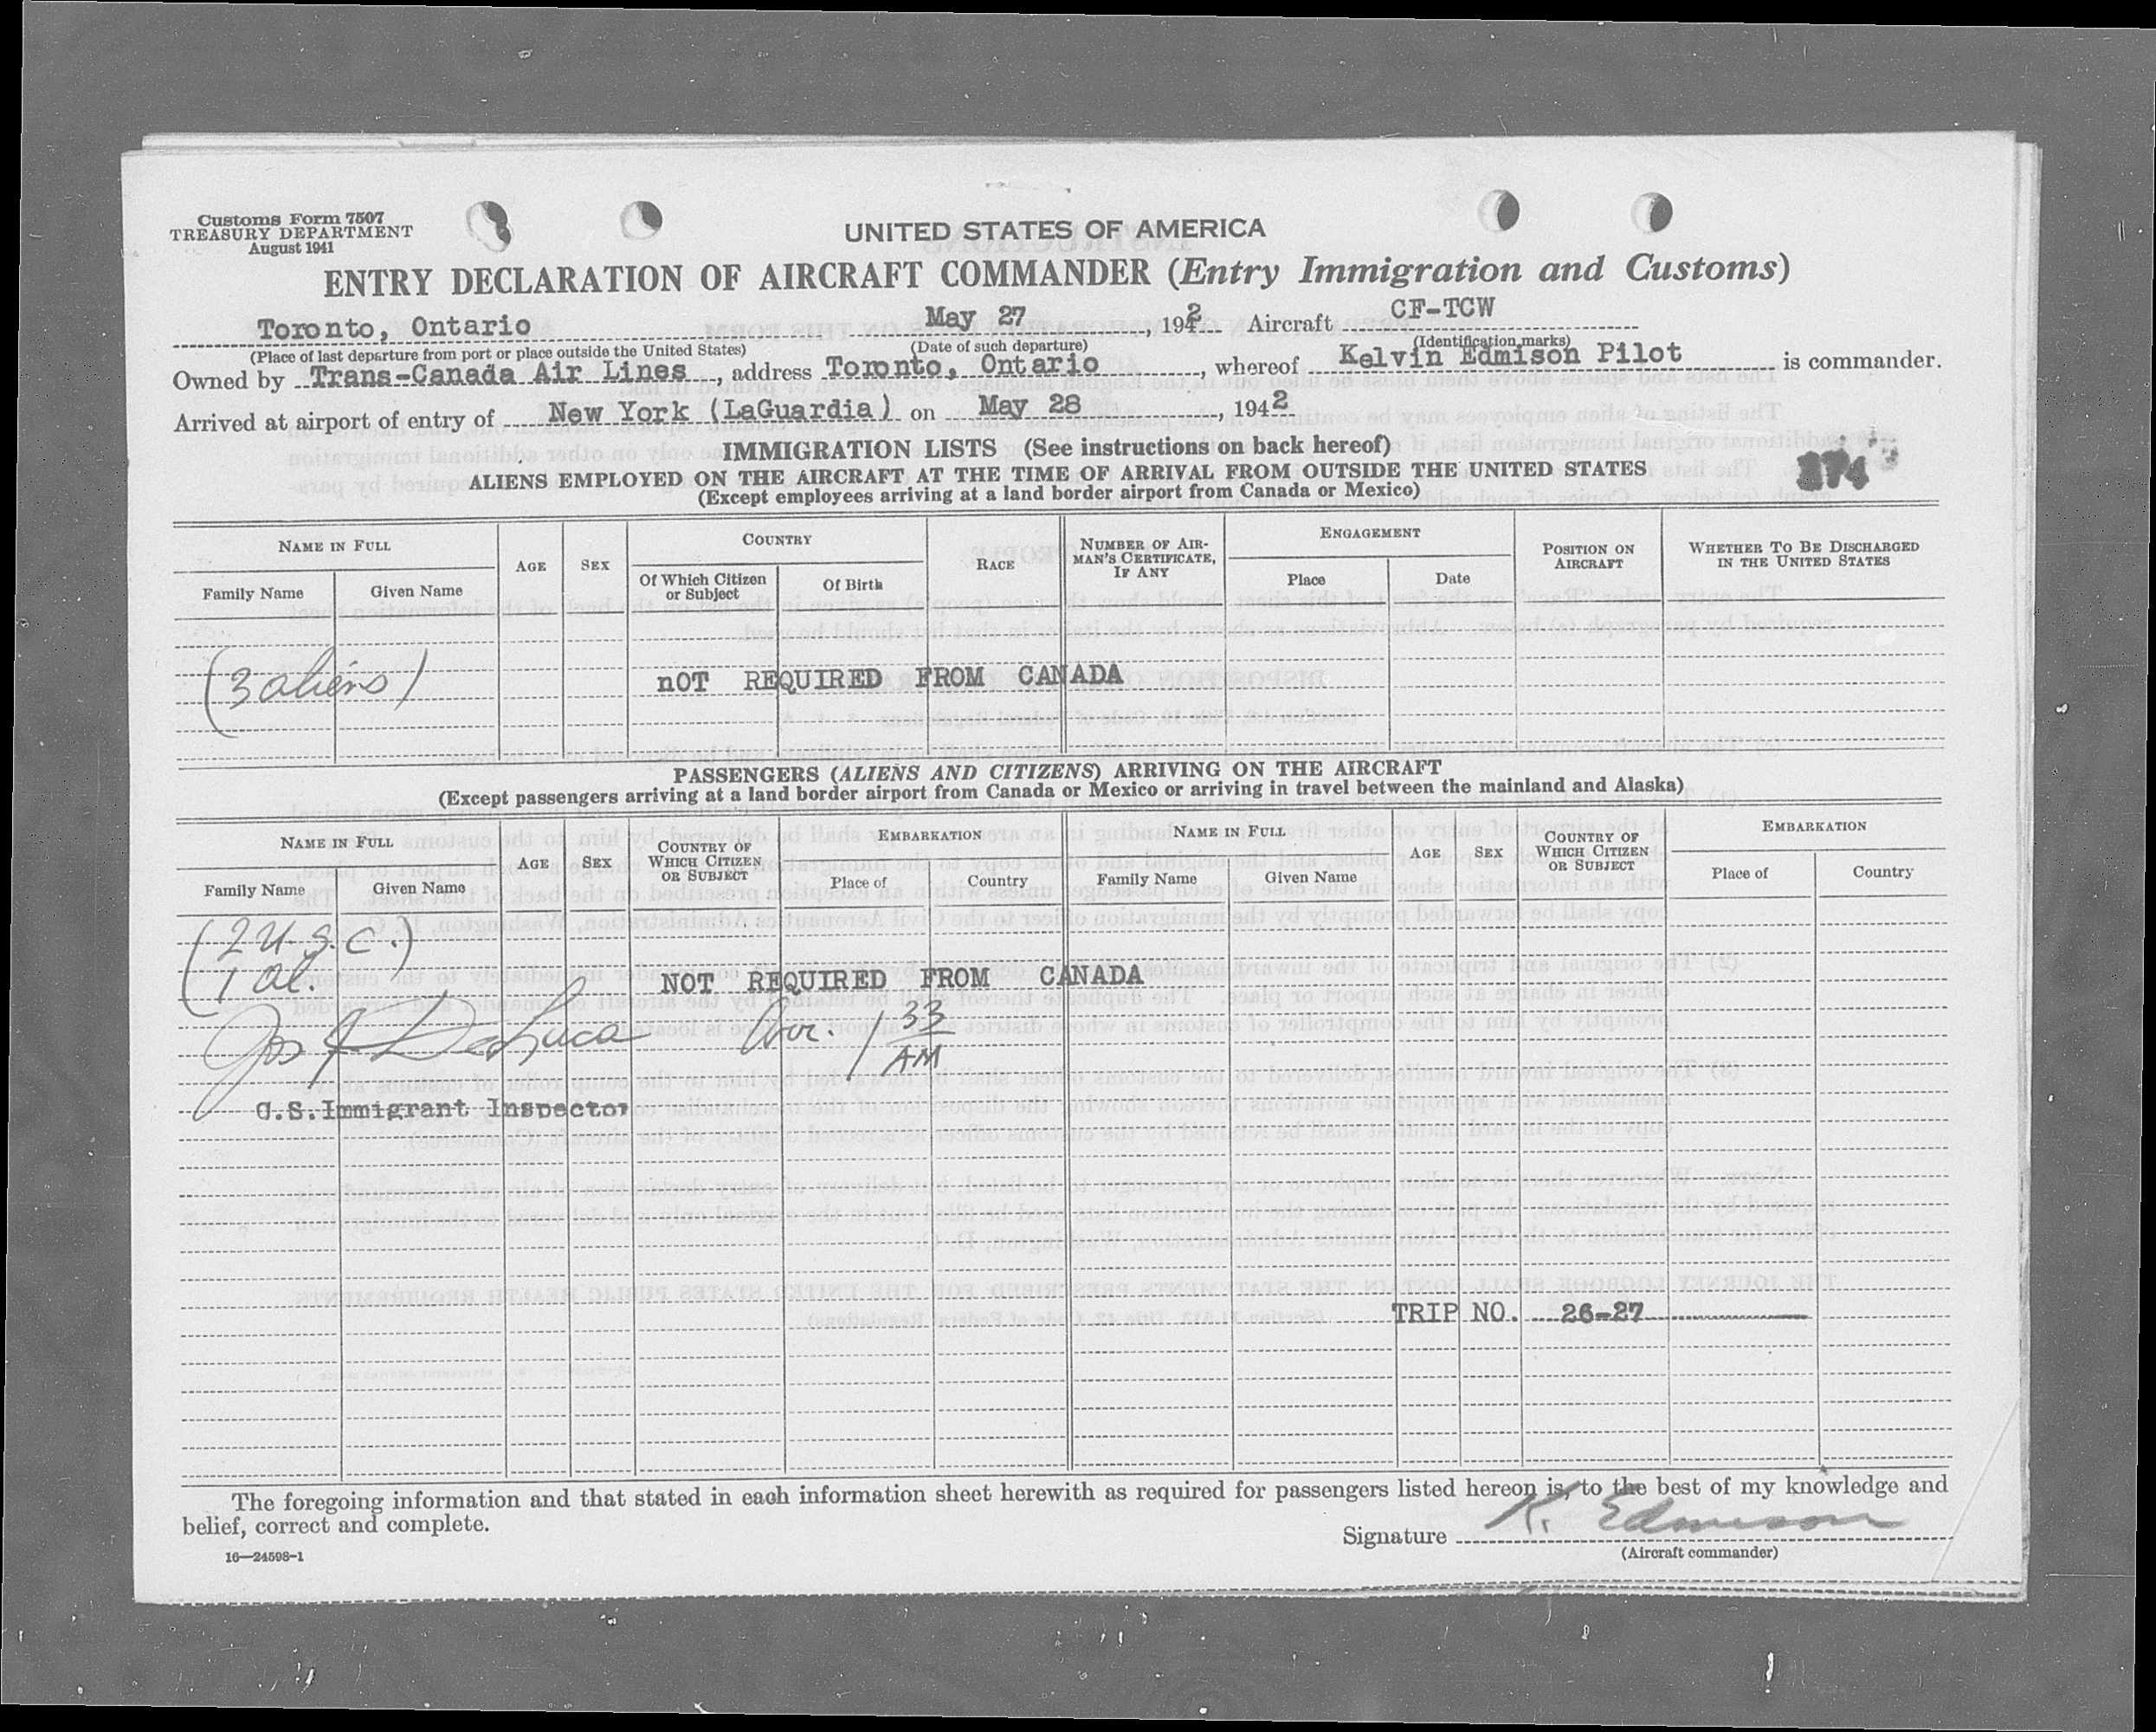 Customs Form 7507
TREASURY DEPARTMENT
August 1941
UNITED STATES OF AMERICA
ENTRY DECLARATION OF AIRCRAFT COMMANDER (Entry Immigration and Customs)
Toronto, Ontario May 27, 1942 Aircraft CF-TCW
(Place of last departure from port or place outside the United States) (Date of such departure) (Identification marks)
Owned by Trans-Canada Air Lines, address Toronto, Ontario, whereof Kelvin Edmison Pilot is commander.
Arrived at airport of entry of New York (LaGuardia) on May 28, 1942
IMMIGRATION LISTS (See instructions on back hereof)
ALIENS EMPLOYED ON THE AIRCRAFT AT THE TIME OF ARRIVAL FROM OUTSIDE THE UNITED STATES
(Except employees arriving at a land border airport from Canada or Mexico)
274
NAME IN FULL AGE SEX COUNTRY RACE NUMBER OF AIRMAN'S CERTIFICATE, IF ANY ENGAGEMENT POSITION ON AIRCRAFT WHETHER TO BE DISCHARGED IN THE UNITED STATES
Family Name Given Name Of Which Citizen or Subject Of Birth Place Date
(3 aliens) nOT REQUIRED FROM CANADA
PASSENGERS (ALIENS AND CITIZENS) ARRIVING ON THE AIRCRAFT
(Except passengers arriving at a land border airport from Canada or Mexico or arriving in travel between the mainland and Alaska)
NAME IN FULL AGE SEX COUNTRY OF WHICH CITIZEN OR SUBJECT EMBARKATION NAME IN FULL AGE SEX COUNTRY OF WHICH CITIZEN OR SUBJECT EMBARKATION
Family Name Given Name Place of Country Family Name Given Name Place of Country
(2 U.S.C.)
(1 al. NOT REQUIRED FROM CANADA
Jos DeLuca Arr. 1 33 AM
U.S. Immigrant Inspector
TRIP NO. 26-27
The foregoing information and that stated in each information sheet herewith as required for passengers listed hereon is, to the best of my knowledge and
belief, correct and complete.
Signature K. Edmison
16—24598-1 (Aircraft commander)